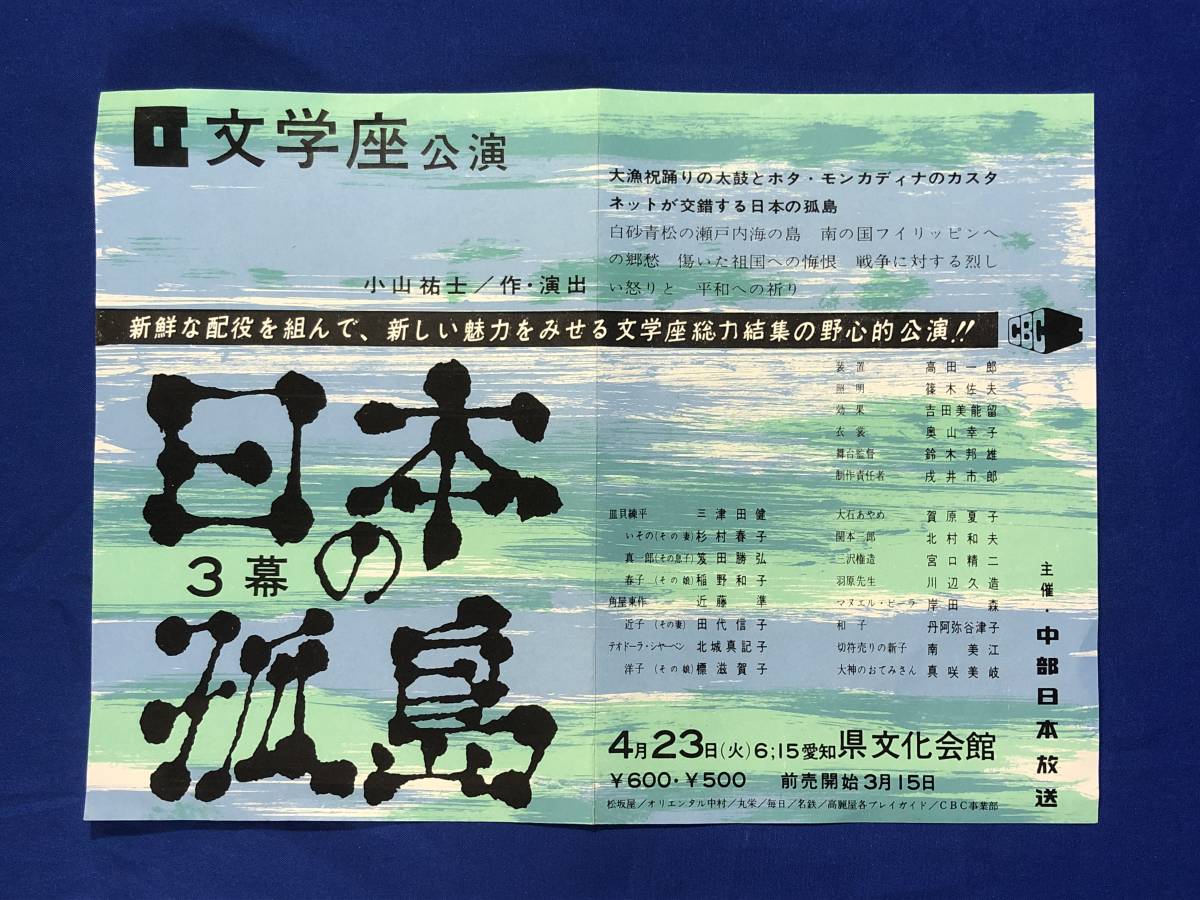 文学座公演
大漁祝踊りの太鼓とホタ・モンカディナのカスタ
ネットが交錯する日本の孤島
白砂青松の瀬戸内海の島 南の国フイリッピンへ
の郷愁 傷いた祖国への悔恨 戦争に対する烈し
い怒りと 平和への祈り
小山祐士/作・演出
新鮮な配役を組んで、新しい魅力をみせる文学座総力結集の野心的公演!!
CBC
日本の孤島
3幕
装置 高田一郎
照明 篠木佐夫
効果 吉田美能留
衣裳 奥山幸子
舞台監督 鈴木邦雄
制作責任者 戌井市郎
皿貝練平 三津田健
いその(その妻) 杉村春子
真一郎(その息子) 笈田勝弘
春子(その娘) 稲野和子
角屋東作 近藤準
近子(その妻) 田代信子
テオドーラ・シャーベン 北城真記子
洋子(その娘) 標滋賀子
大石あやめ 賀原夏子
関本二郎 北村和夫
三沢権造 宮口精二
羽原先生 川辺久造
マヌエル・ピーラ 岸田森
和子 丹阿弥谷津子
切符売りの新子 南美江
大神のおてみさん 真咲美岐
4月23日(火)6;15愛知県文化会館
¥600・¥500 前売開始3月15日
松坂屋/オリエンタル中村/丸栄/毎日/名鉄/高麗屋各プレイガイド/CBC事業部
主催・中部日本放送